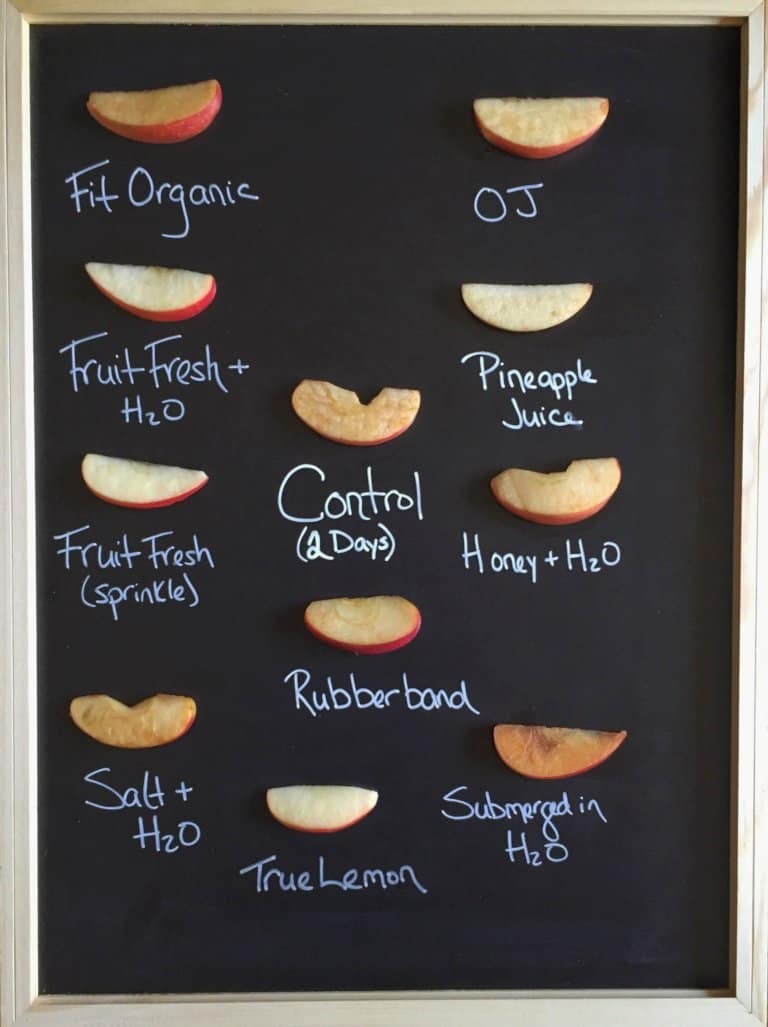 Fit Organic
OJ
Fruit Fresh +
H₂O
Pineapple
Juice
Control
(2 Days)
Fruit Fresh
(sprinkle)
Honey + H₂O
Rubberband
Salt +
H₂O
Submerged in
H₂O
True Lemon